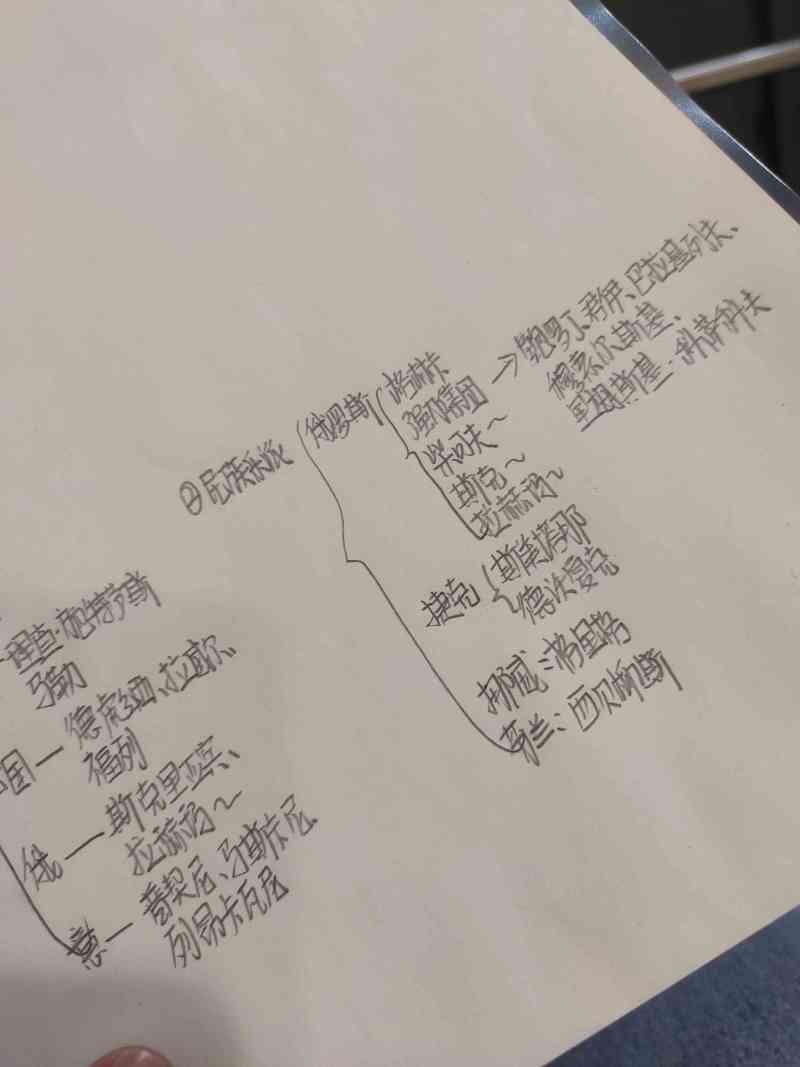 ②民族乐派
俄罗斯
格林卡
强力集团 → 鲍罗丁、居伊、巴拉基列夫、
穆索尔斯基、
里姆斯基·科萨科夫
柴可夫~
斯克~
拉赫玛~
捷克
斯美塔那
德沃夏克
挪威：格里格
芬兰：西贝柳斯
理查·施特劳斯
马勒
国 — 德彪西、拉威尔、
福列
俄 — 斯克里亚宾、
拉赫玛~
意 — 普契尼、马斯卡尼、
列昂卡瓦尼